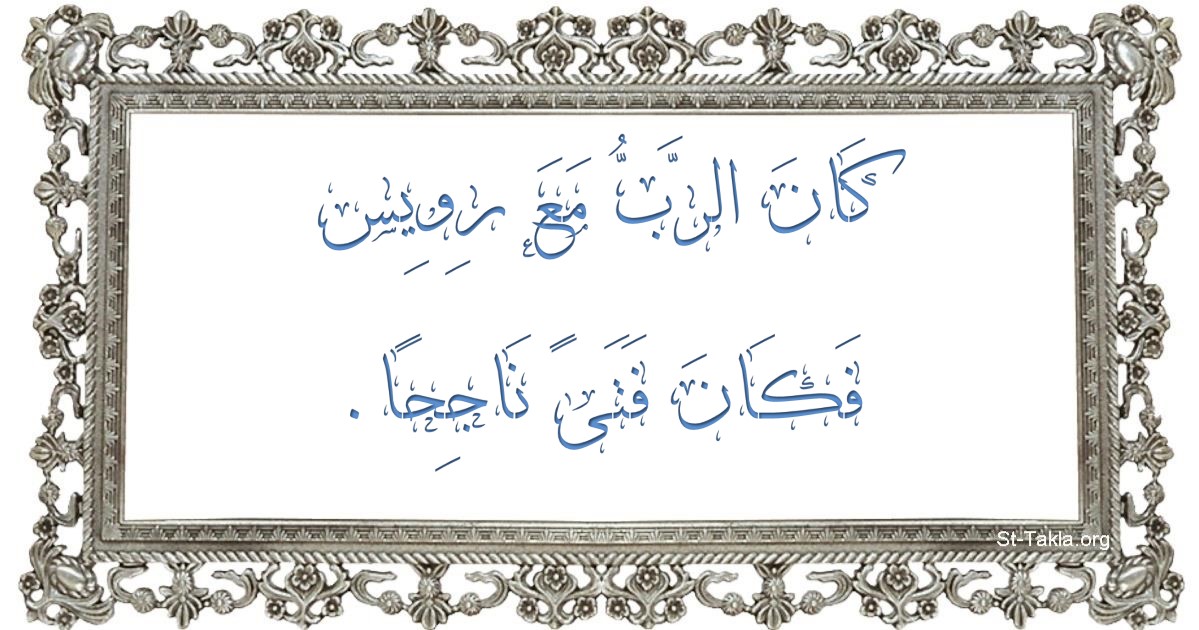 كَانَ الرَّبُّ مَعَ رِوِيِس
فَكَانَ فَتَىً نَاجِحًا.
St-Takla.org